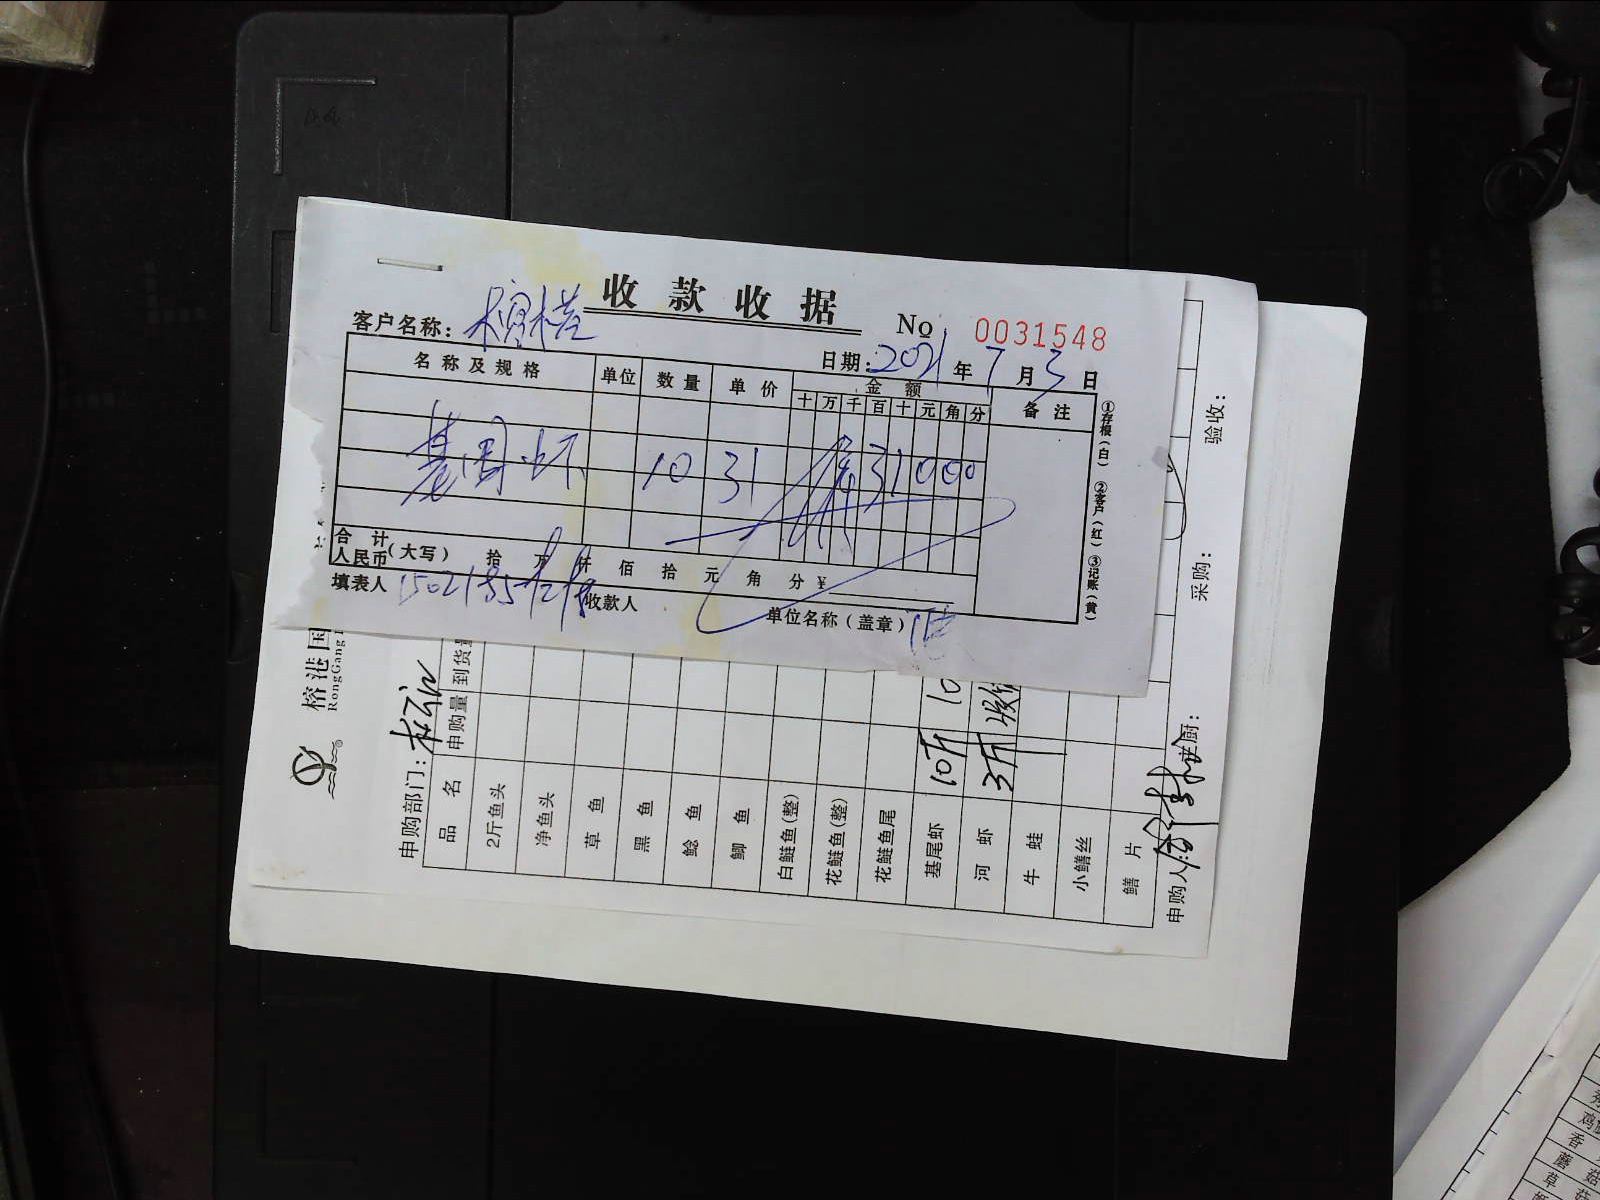 收款收据
No 0031548
客户名称：
日期：2021年7月3日
名称及规格 单位 数量 单价 金额 备注
十 万 千 百 十 元 角 分
基围虾 10 31 31000
合计
人民币（大写） 拾 万 仟 佰 拾 元 角 分 ¥
填表人 收款人 单位名称（盖章）
①存根（白） ②客户（红） ③记账（黄）
榕港国
RongGang
申购部门：
品名 申购量 到货量
2斤鱼头
净鱼头
草鱼
黑鱼
鲶鱼
鲫鱼
白鲢鱼(整)
花鲢鱼(整)
花鲢鱼尾
基尾虾 10斤 10
河虾 3斤
牛蛙
小鳝丝
鳝片
申购人：
厨：
采购：
验收：
香
蘑菇
草菇